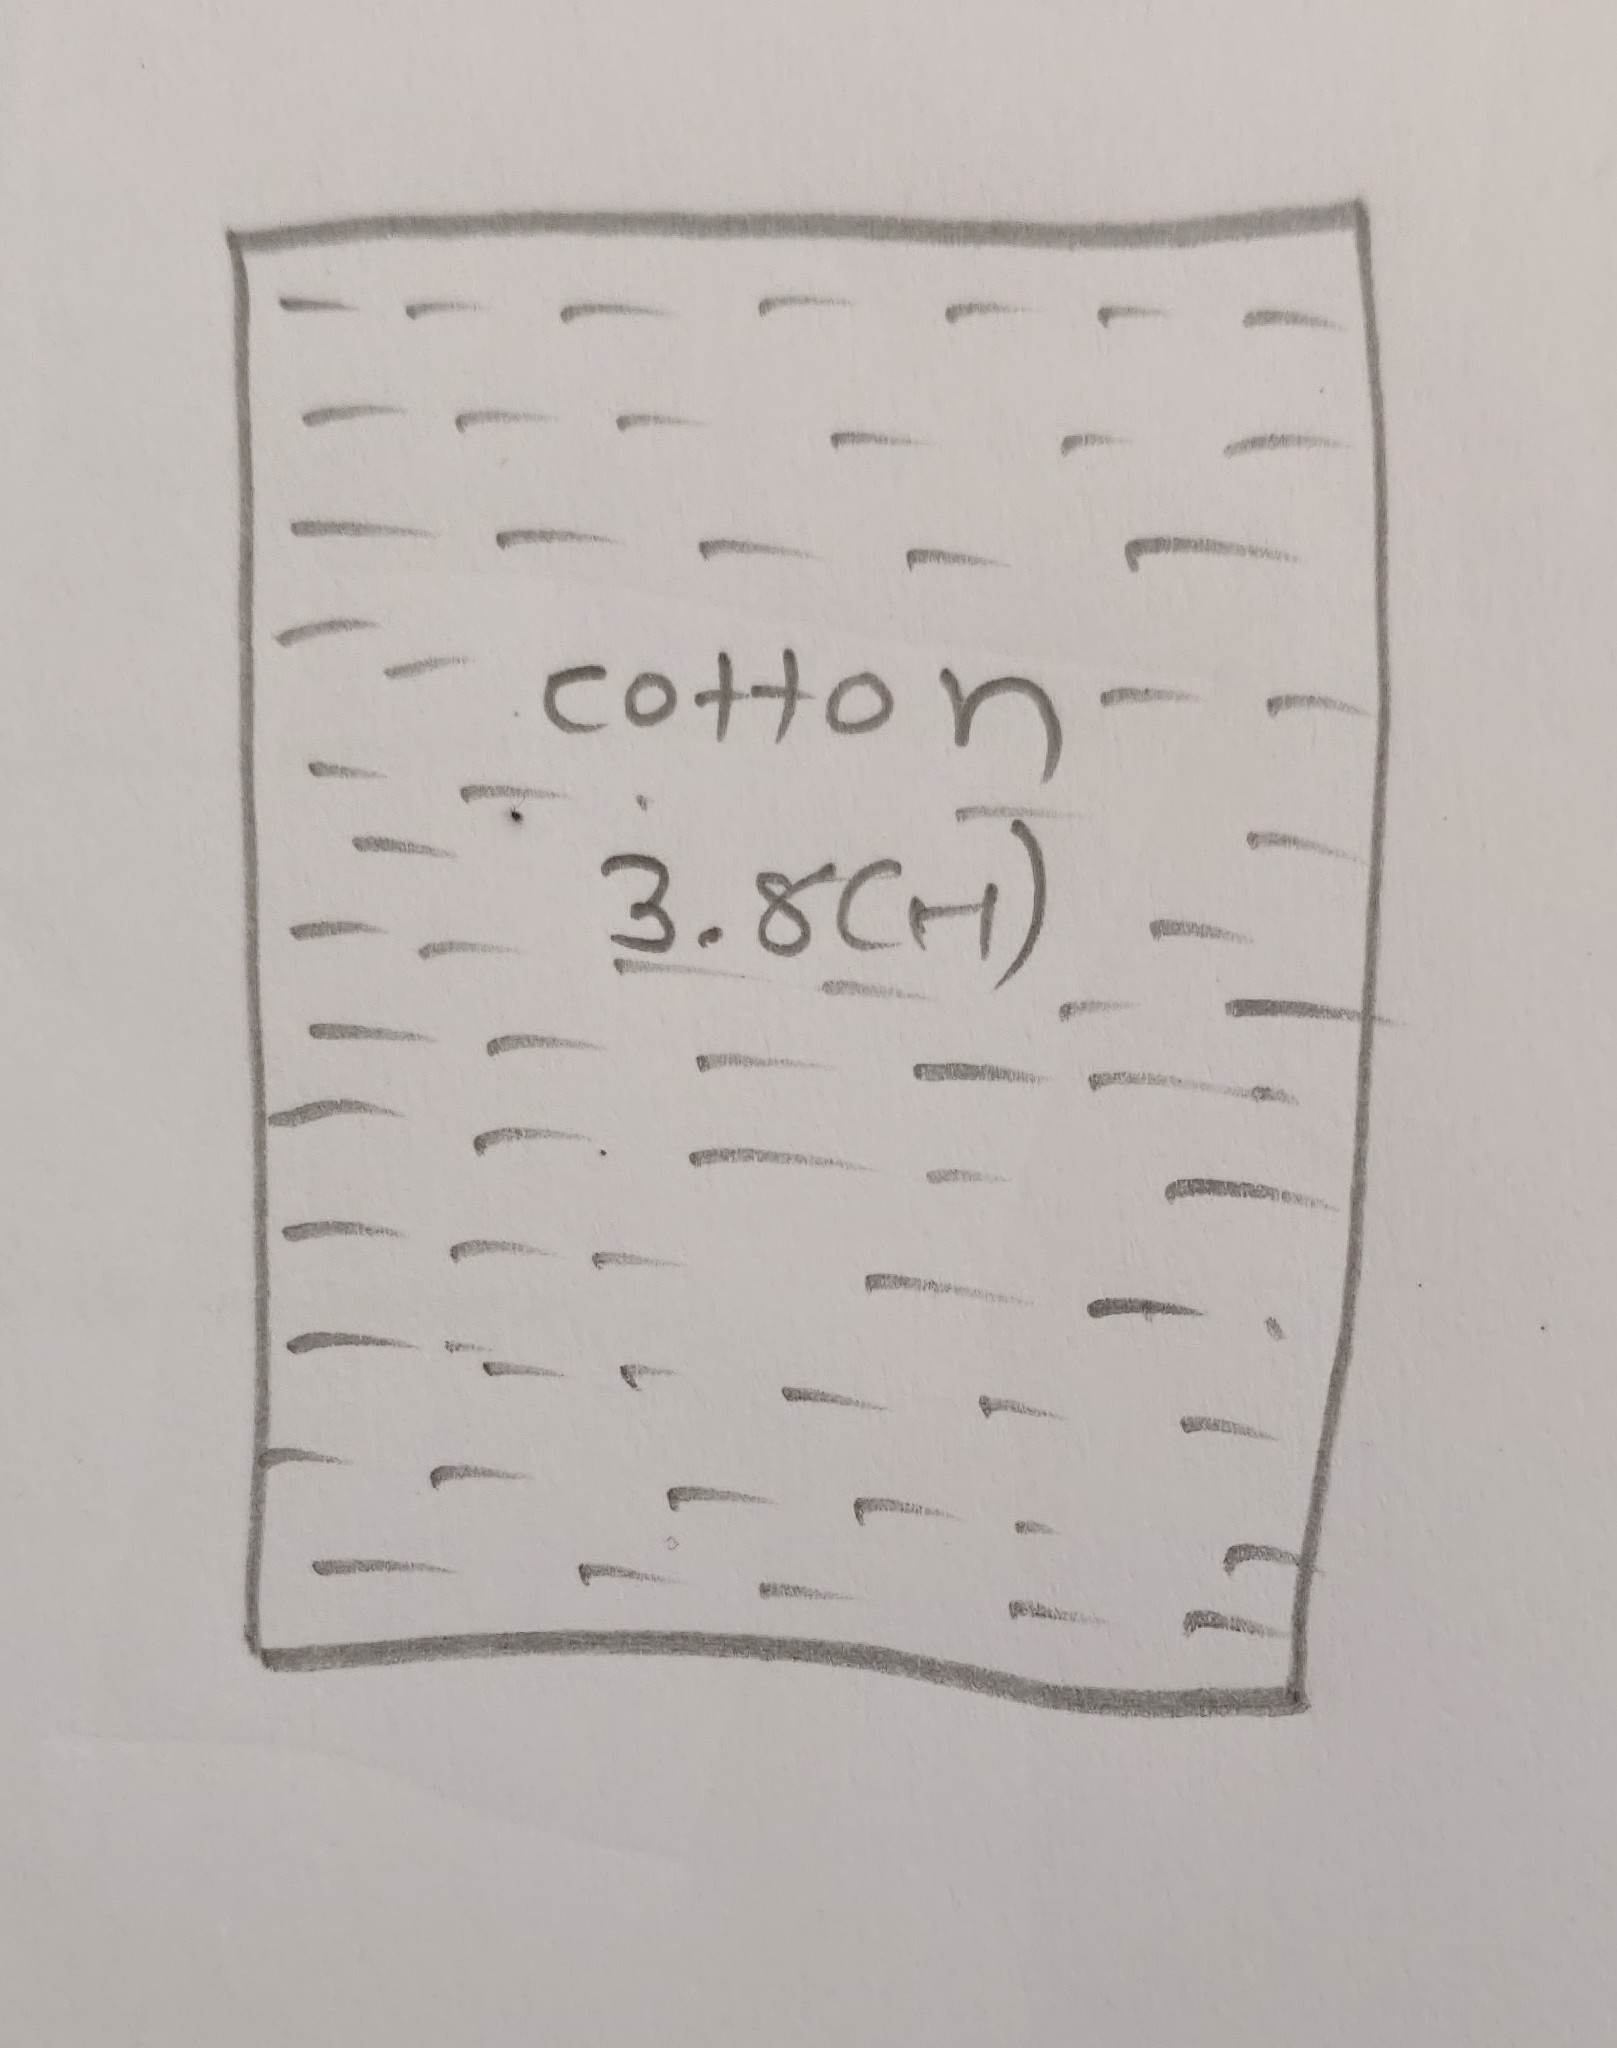 cotton
3.8(H)